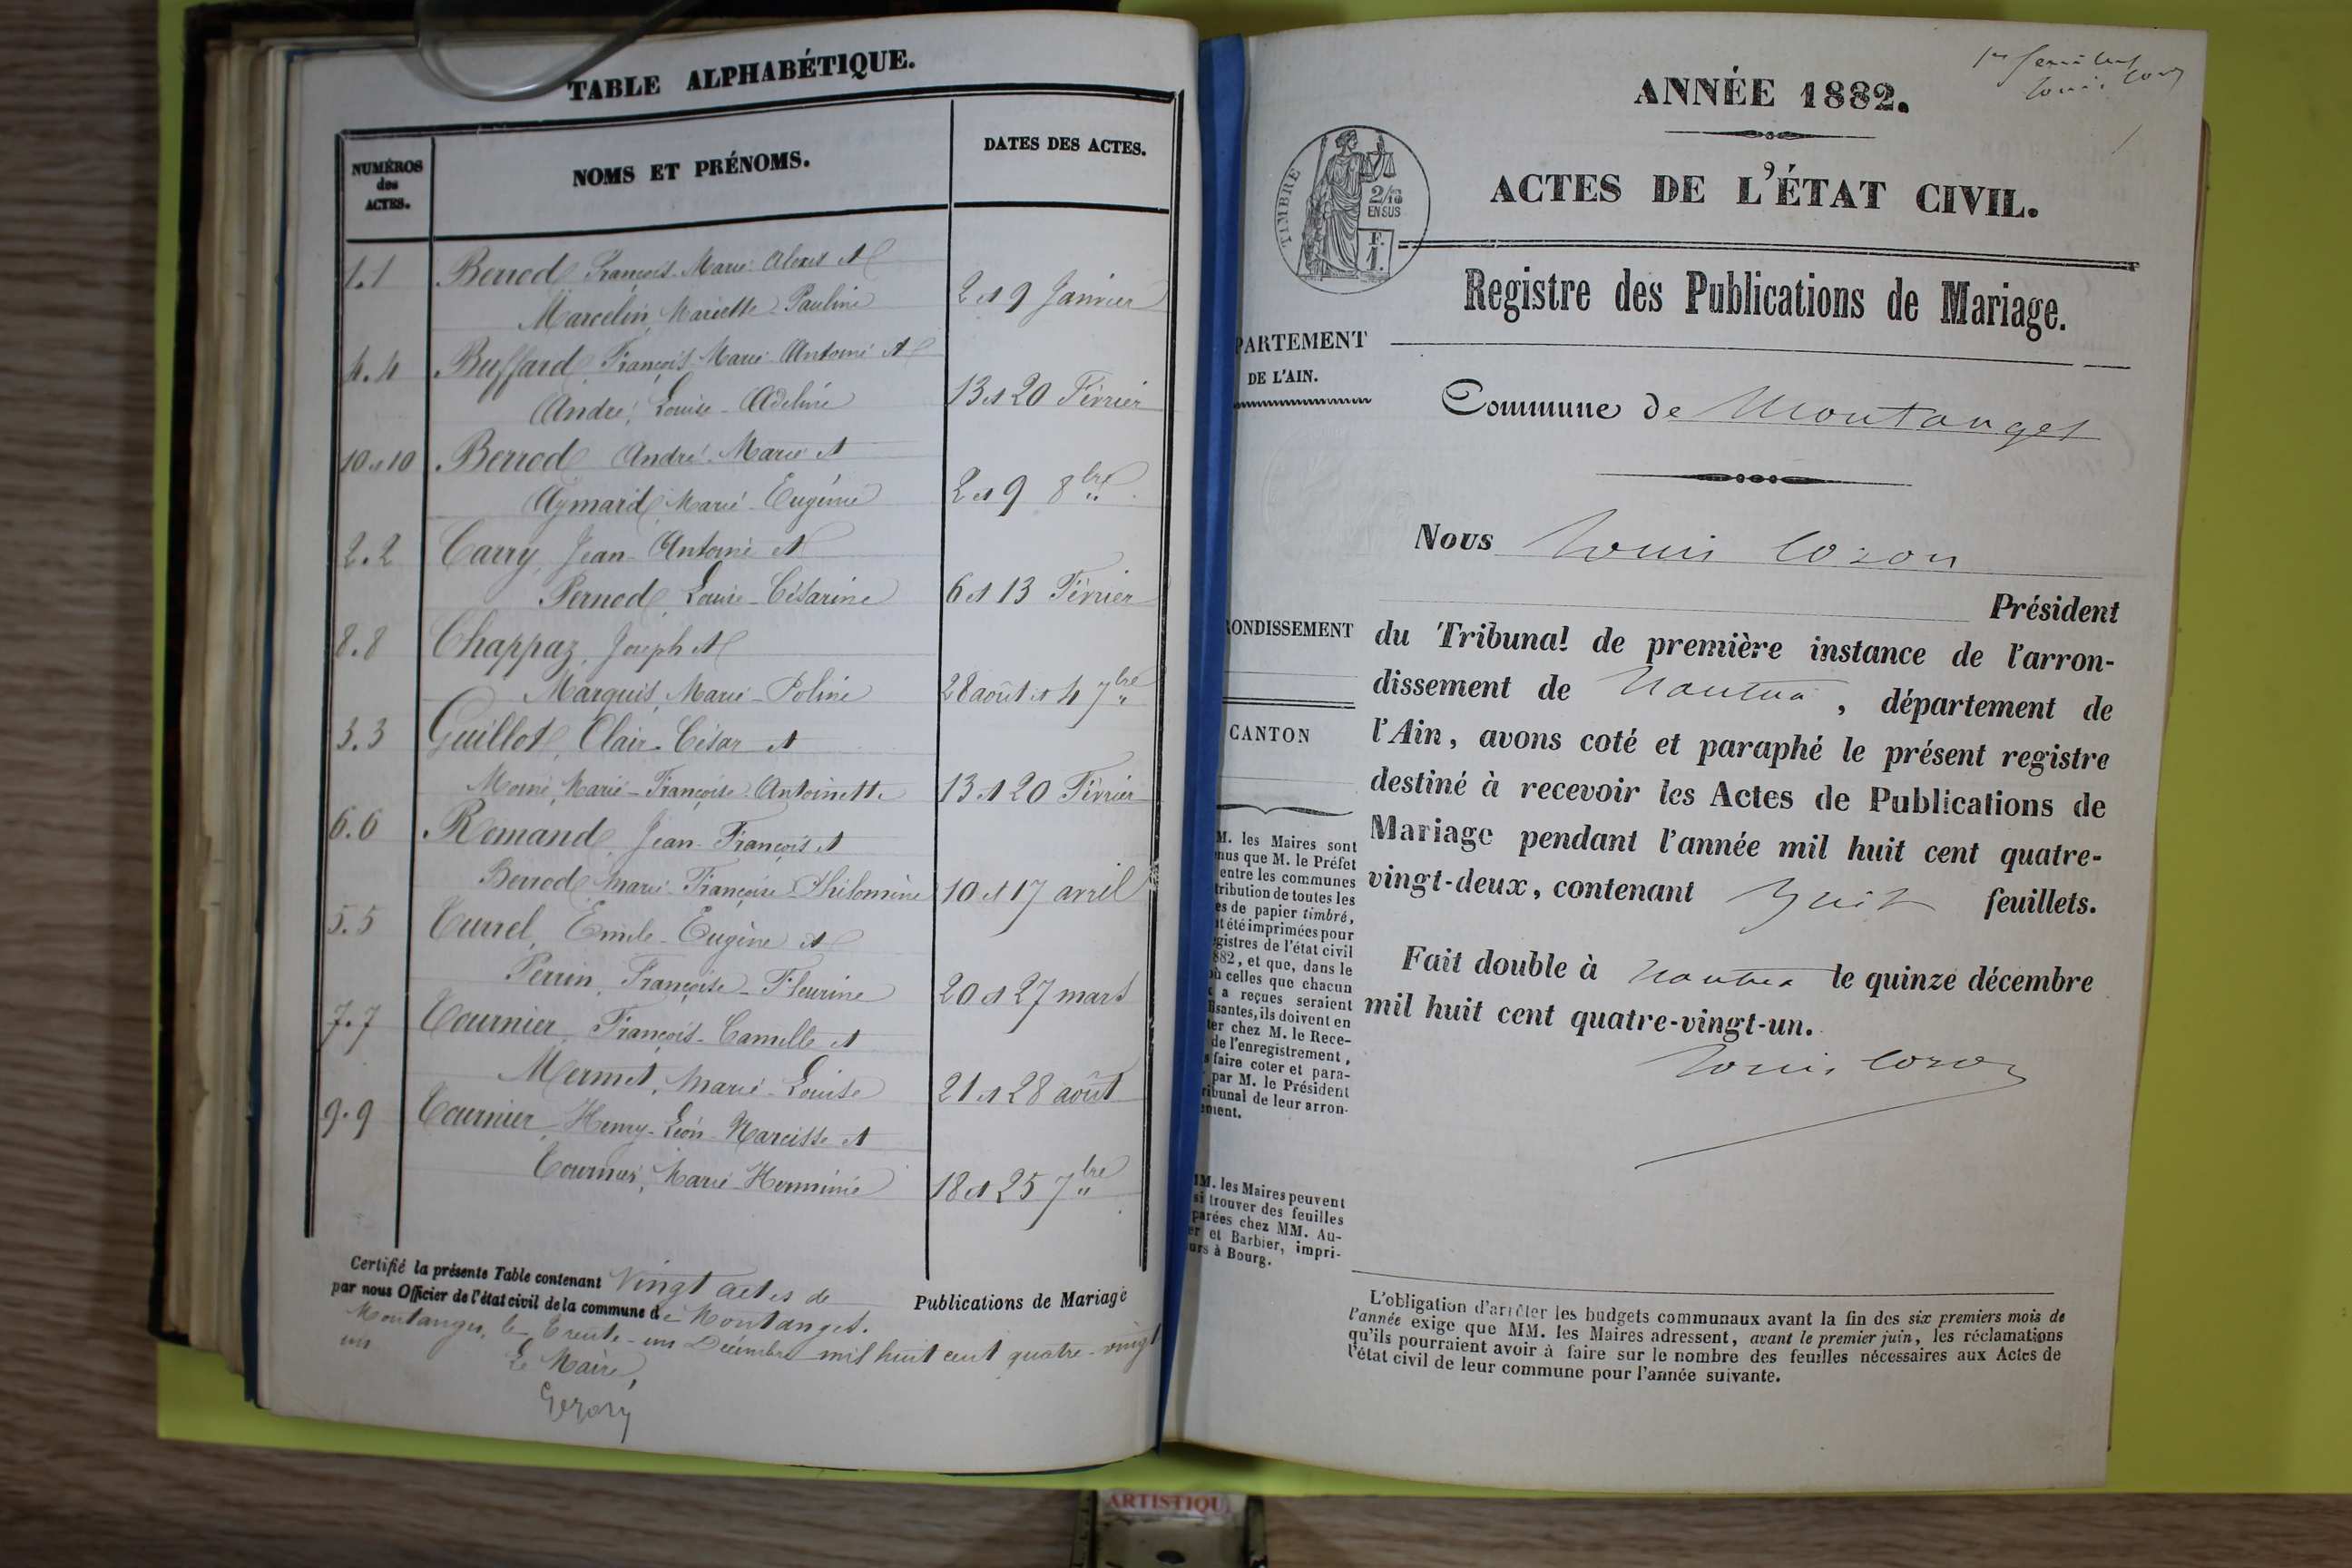 TABLE ALPHABÉTIQUE.
NUMÉROS
des
ACTES.
NOMS ET PRÉNOMS.
DATES DES ACTES.
1.1 Berrod François Marie Alexis et
Marcelin, Mariette Pauline 2 et 9 Janvier
4.4 Buffard François Marie Antoine et
André, Louise Adeline 13 et 20 Février
10 et 10 Berrod André Marie et
Aymard Marie Eugénie 2 et 9 8bre
2.2 Carry, Jean Antoine et
Pernod Louise Césarine 6 et 13 Février
8.8 Chappaz, Joseph et
Marquis, Marie Poline 28 août et 4 7bre
3.3 Guillot, Clair César et
Moine, Marie Françoise Antoinette 13 et 20 Février
6.6 Romand Jean François et
Berrod Marie Françoise Philomène 10 et 17 avril
5.5 Turrel, Emile Eugène et
Perrin, Françoise Fleurine 20 et 27 mars
7.7 Tournier, François Camille et
Mermet, Marie Louise 21 et 28 août
9.9 Tournier Henry Léon Narcisse et
Tournier, Marie Herminie 18 et 25 7bre
Certifié la présente Table contenant Vingt actes de Publications de Mariage
par nous Officier de l'état civil de la commune de Montanges.
Montanges, le trente-un Décembre mil huit cent quatre-vingt
un
Le Maire,
ANNÉE 1882.
1er feuillet
Louis Cozon
ACTES DE L'ÉTAT CIVIL.
TIMBRE
2/10
EN SUS
F.
1.
Registre des Publications de Mariage.
PARTEMENT
DE L'AIN.
Commune de Montanges
Nous Louis Cozon
Président
du Tribunal de première instance de l'arron-
dissement de Nantua, département de
l'Ain, avons coté et paraphé le présent registre
destiné à recevoir les Actes de Publications de
Mariage pendant l'année mil huit cent quatre-
vingt-deux, contenant huit feuillets.
Fait double à Nantua le quinze décembre
mil huit cent quatre-vingt-un.
Louis Cozon
RONDISSEMENT
CANTON
M. les Maires sont
nus que M. le Préfet
entre les communes
tribution de toutes les
es de papier timbré,
t été imprimées pour
gistres de l'état civil
882, et que, dans le
où celles que chacun
x a reçues seraient
fisantes, ils doivent en
ter chez M. le Rece-
de l'enregistrement,
s faire coter et para-
par M. le Président
ribunal de leur arron-
ement.
MM. les Maires peuvent
si trouver des feuilles
parées chez MM. Au-
er et Barbier, impri-
urs à Bourg.
L'obligation d'arrêter les budgets communaux avant la fin des six premiers mois de
l'année exige que MM. les Maires adressent, avant le premier juin, les réclamations
qu'ils pourraient avoir à faire sur le nombre des feuilles nécessaires aux Actes de
l'état civil de leur commune pour l'année suivante.
ARTISTIQU